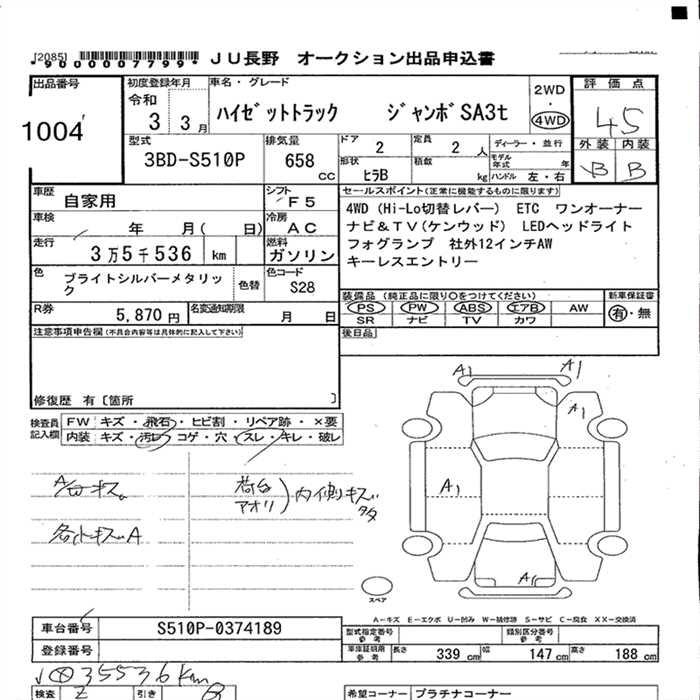 [2085]
*9000007799*
JU長野 オークション出品申込書
出品番号
1004
初度登録年月
令和
3 3月
車名・グレード
ハイゼットトラック ジャンボSA3t
2WD
・
4WD
評価点
4.5
外装 内装
B B
型式
3BD-S510P
排気量
658 cc
ドア
2
定員
2 人
形状
ヒラB
積数
kg
ディーラー・並行
モデル年式 年
ハンドル 左・右
車歴
自家用
シフト
F5
車検
年 月( 日)
冷房
AC
走行
3万5千536 km
燃料
ガソリン
色
ブライトシルバーメタリック
色替
色コード
S28
R券
5,870 円
名変通知期限
月 日
セールスポイント(正常に機能するものに限ります)
4WD (Hi-Lo切替レバー) ETC ワンオーナー
ナビ&TV(ケンウッド) LEDヘッドライト
フォグランプ 社外12インチAW
キーレスエントリー
装備品 (純正品に限り○をつけてください)
PS PW ABS エアB AW
SR ナビ TV カワ
新車保証書
有・無
後日品
注意事項申告欄(不具合内容等は具体的に記入して下さい)
修復歴 有[箇所 ]
検査員記入欄
FW キズ・飛石・ヒビ割・リペア跡・×要
内装 キズ・汚レ・コゲ・穴・スレ・キレ・破レ
荷台
アオリ
内側キズ多
各小キズA
A1
A1
A1
A1
スペア
A-キズ E-エクボ U-凹み W-補修跡 S-サビ C-腐食 XX-交換済
車台番号 S510P-0374189
登録番号
型式指定番号 参考
類別区分番号 参考
車庫証明用 参考
長さ 339 cm 幅 147 cm 高さ 188 cm
35536km
検査
引き
希望コーナー プラチナコーナー